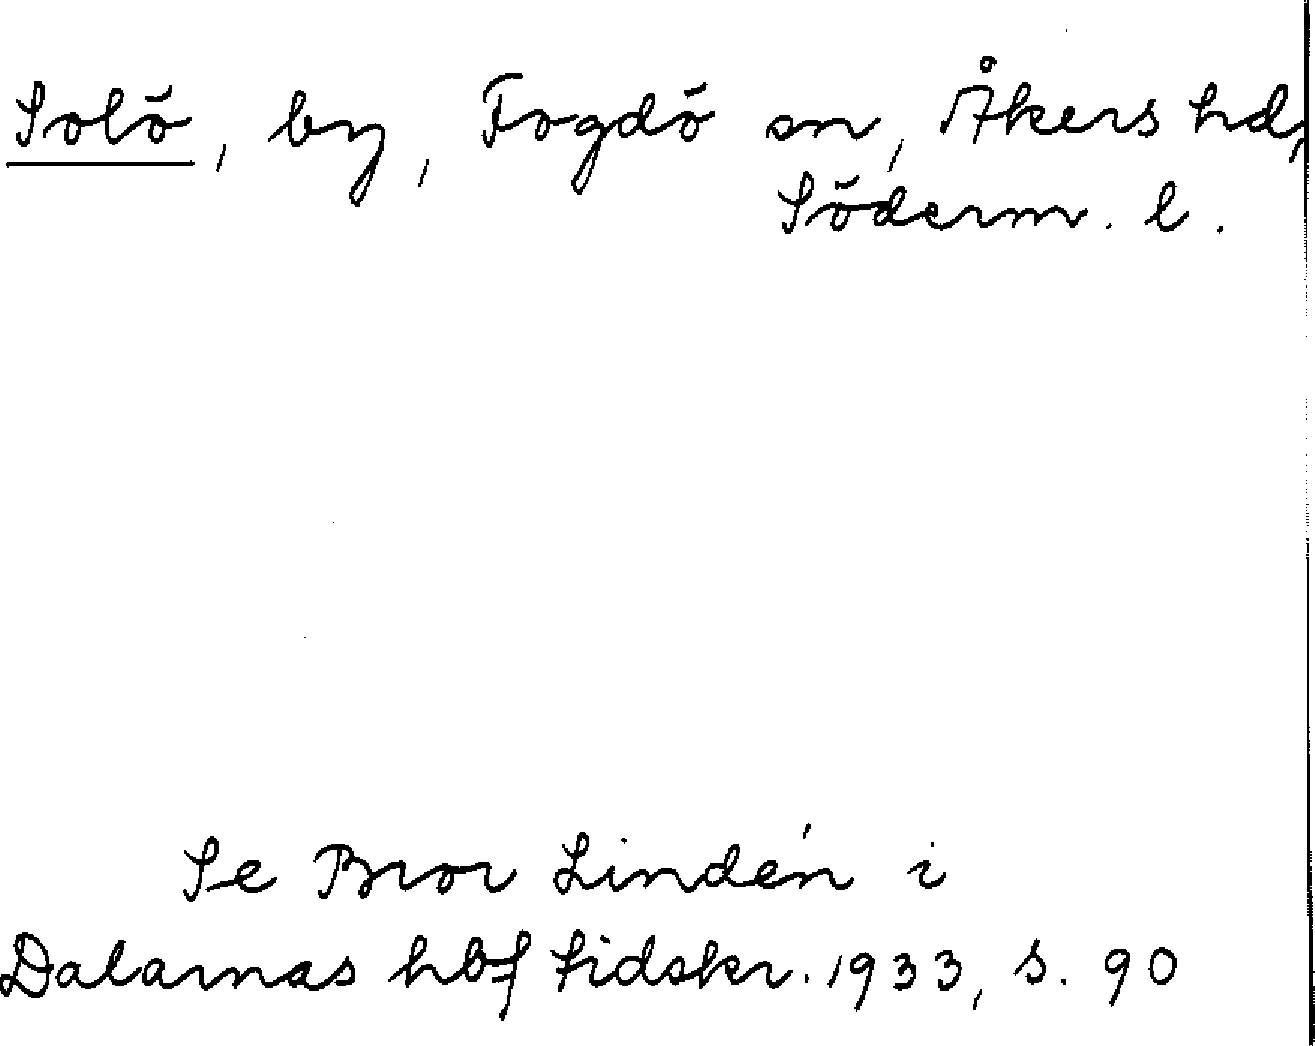 Solö, by, Fogdö sn, Åkers hd,
Söderm. l.
Se Bror Lindén i
Dalarnas hbf tidskr. 1933, s. 90